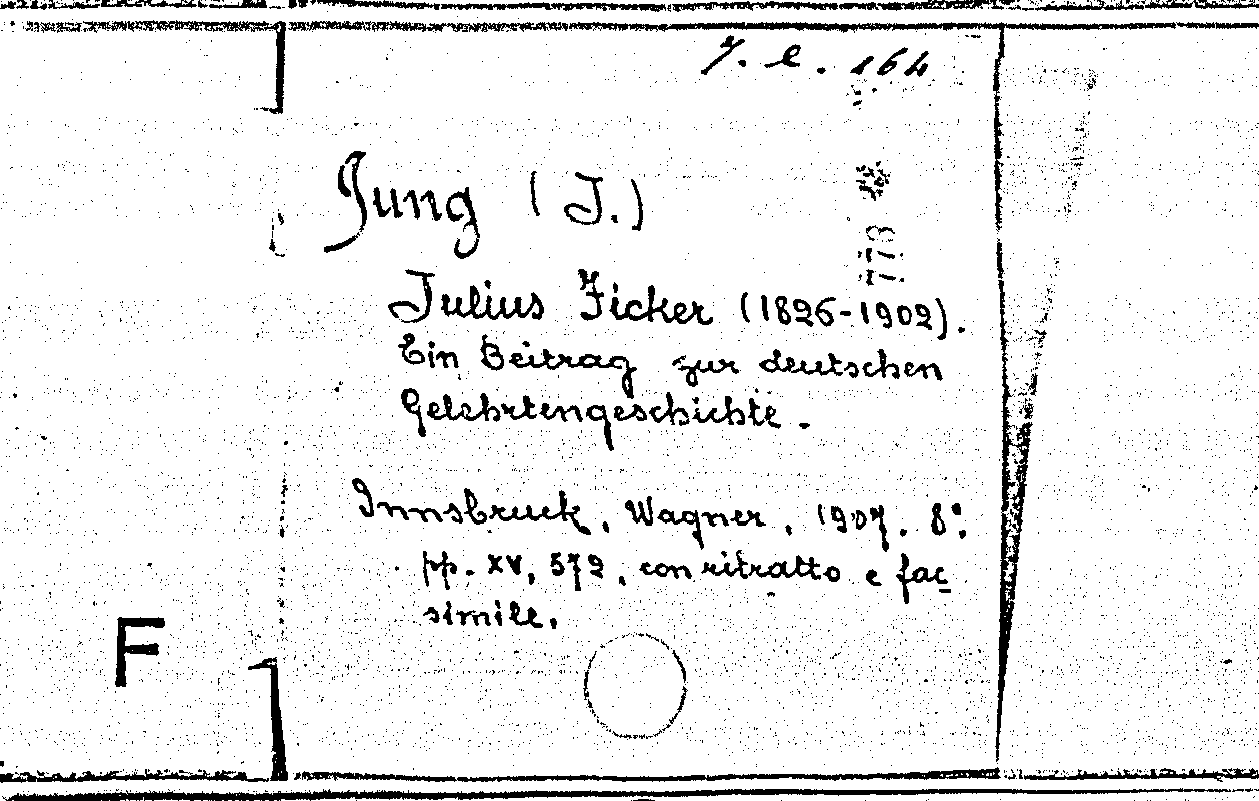 7. e. 164
Jung (J.)
Julius Ficker (1826-1902).
Ein Beitrag zur deutschen
Gelehrtengeschichte.
Innsbruck, Wagner, 1907. 8°.
pp. XV, 572, con ritratto e fac
simile.
F